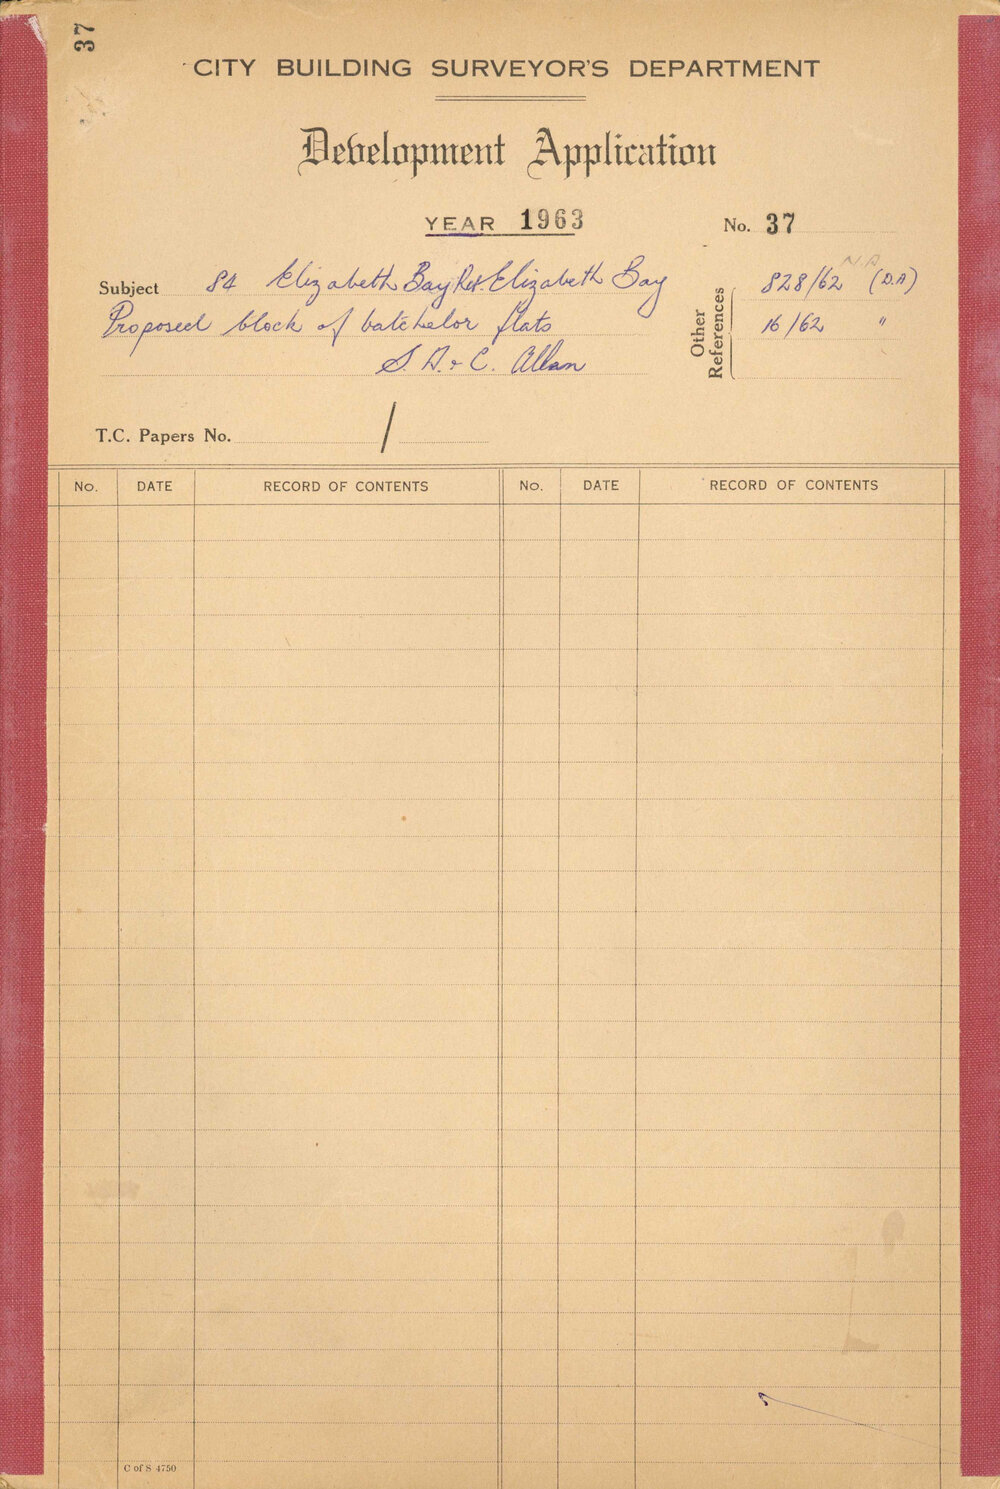 37
CITY BUILDING SURVEYOR'S DEPARTMENT
Development Application
YEAR 1963 No. 37
Subject 84 Elizabeth Bay Rd. Elizabeth Bay
Proposed block of batchelor flats
S. A. & C. Allan
Other References
N.A
828/62 (D.A)
16/62 "
T.C. Papers No. /
No. DATE RECORD OF CONTENTS No. DATE RECORD OF CONTENTS
C of S 4750